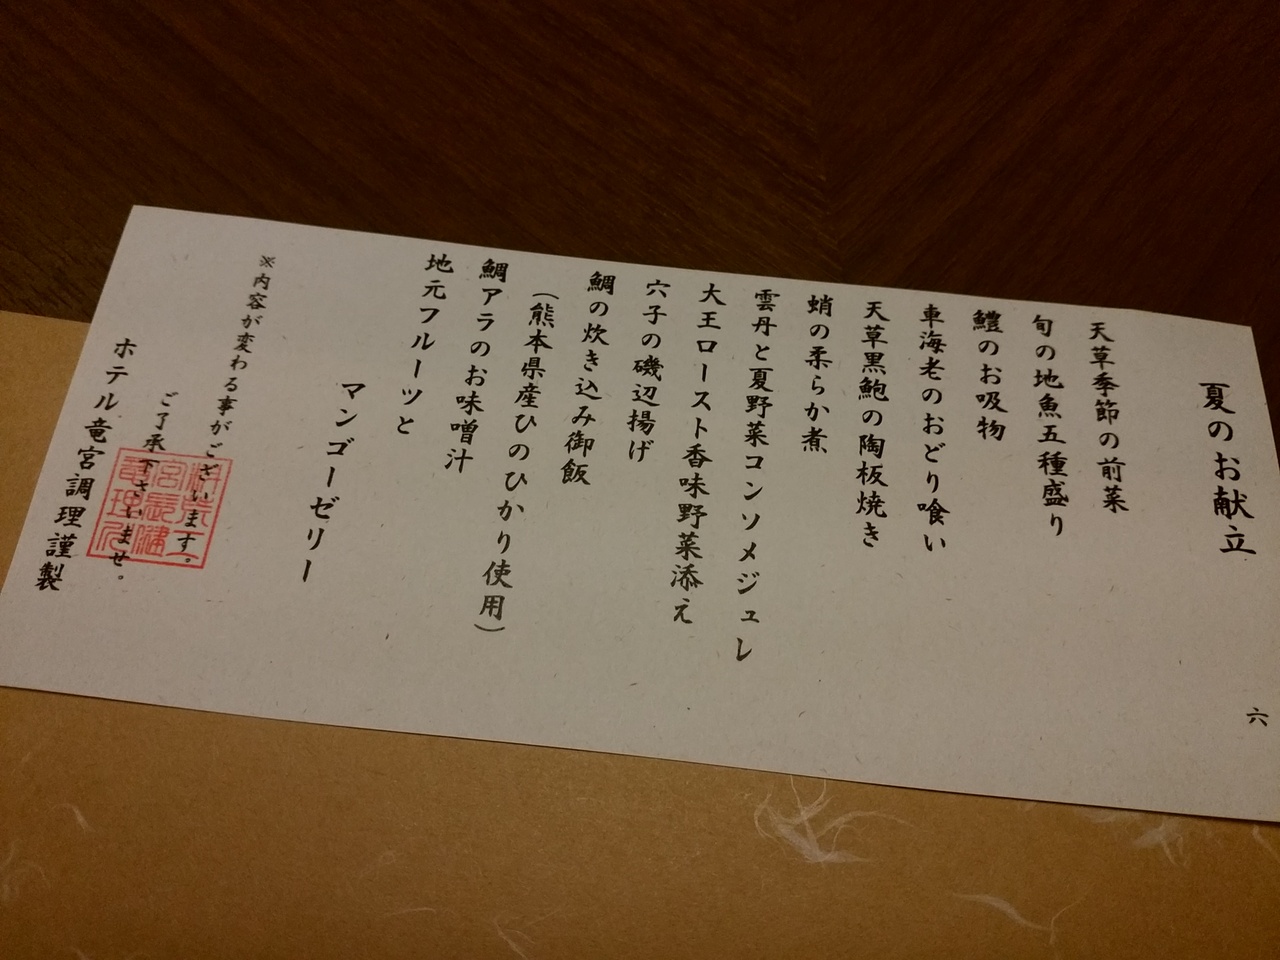 夏のお献立
六
天草季節の前菜
旬の地魚五種盛り
鱧のお吸物
車海老のおどり喰い
天草黒鮑の陶板焼き
蛸の柔らか煮
雲丹と夏野菜コンソメジュレ
大王ロースト香味野菜添え
穴子の磯辺揚げ
鯛の炊き込み御飯
（熊本県産ひのひかり使用）
鯛アラのお味噌汁
地元フルーツと
マンゴーゼリー
※内容が変わる事がございます。
ご了承下さいませ。
ホテル竜宮調理謹製